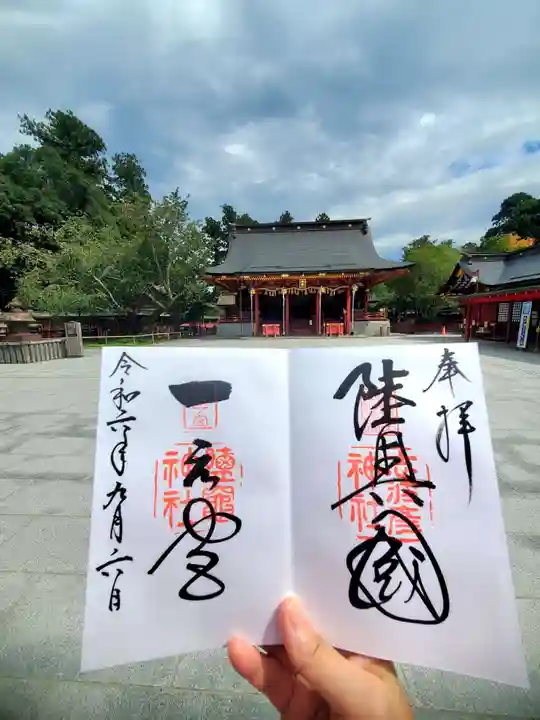 奉拝
陸奥国
志波彦神社
一之宮
鹽竈神社
令和六年九月六日